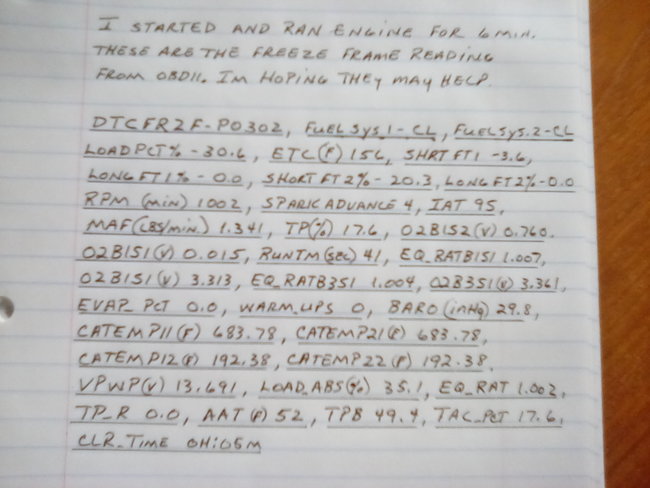 I STARTED AND RAN ENGINE FOR 6 MIN.
THESE ARE THE FREEZE FRAME READING
FROM OBDII. IM HOPING THEY MAY HELP.
DTCFRZF-PO302, FUEL SYS.1-CL, FUELSYS.2-CL
LOADPCT% -30.6, ETC(F) 156, SHRT FT1 -3.6,
LONG FT1% -0.0, SHORT FT2% -20.3, LONG FT2% -0.0
RPM (MIN) 1002, SPARK ADVANCE 4, IAT 95,
MAF (LBS/MIN.) 1.341, TP(%) 17.6, O2B1S2 (V) 0.760.
O2B1S1(V) 0.015, RUNTM(SEC) 41, EQ_RATB1S1 1.007,
O2B1S1(V) 3.313, EQ_RATB3S1 1.004, O2B3S1(V) 3.361,
EVAP_PCT 0.0, WARM_UPS 0, BARO (inHg) 29.8,
CATEMP11(F) 683.78, CATEMP21(F) 683.78,
CATEMP12(F) 192.38, CATEMP22(F) 192.38.
VPWP(V) 13.691, LOAD_ABS(%) 35.1, EQ_RAT 1.002,
TP_R 0.0, AAT(F) 52, TPB 49.4, TAC_PCT 17.6,
CLR_TIME OH:05M